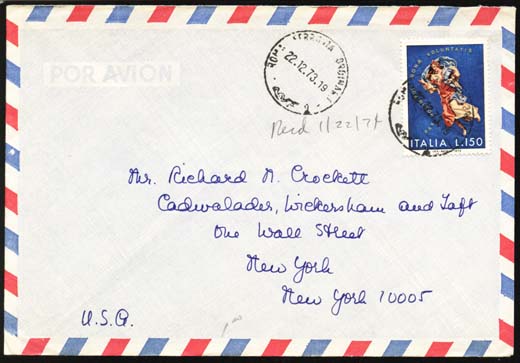 POR AVION
ROMA FERROVIA ORDINARI
22.12.73.19
Recd 1/22/74
ITALIA L.150
Mr. Richard N. Crockett
Cadwalader, Wickersham and Taft
One Wall Street
New York
New York 10005
U.S.A.